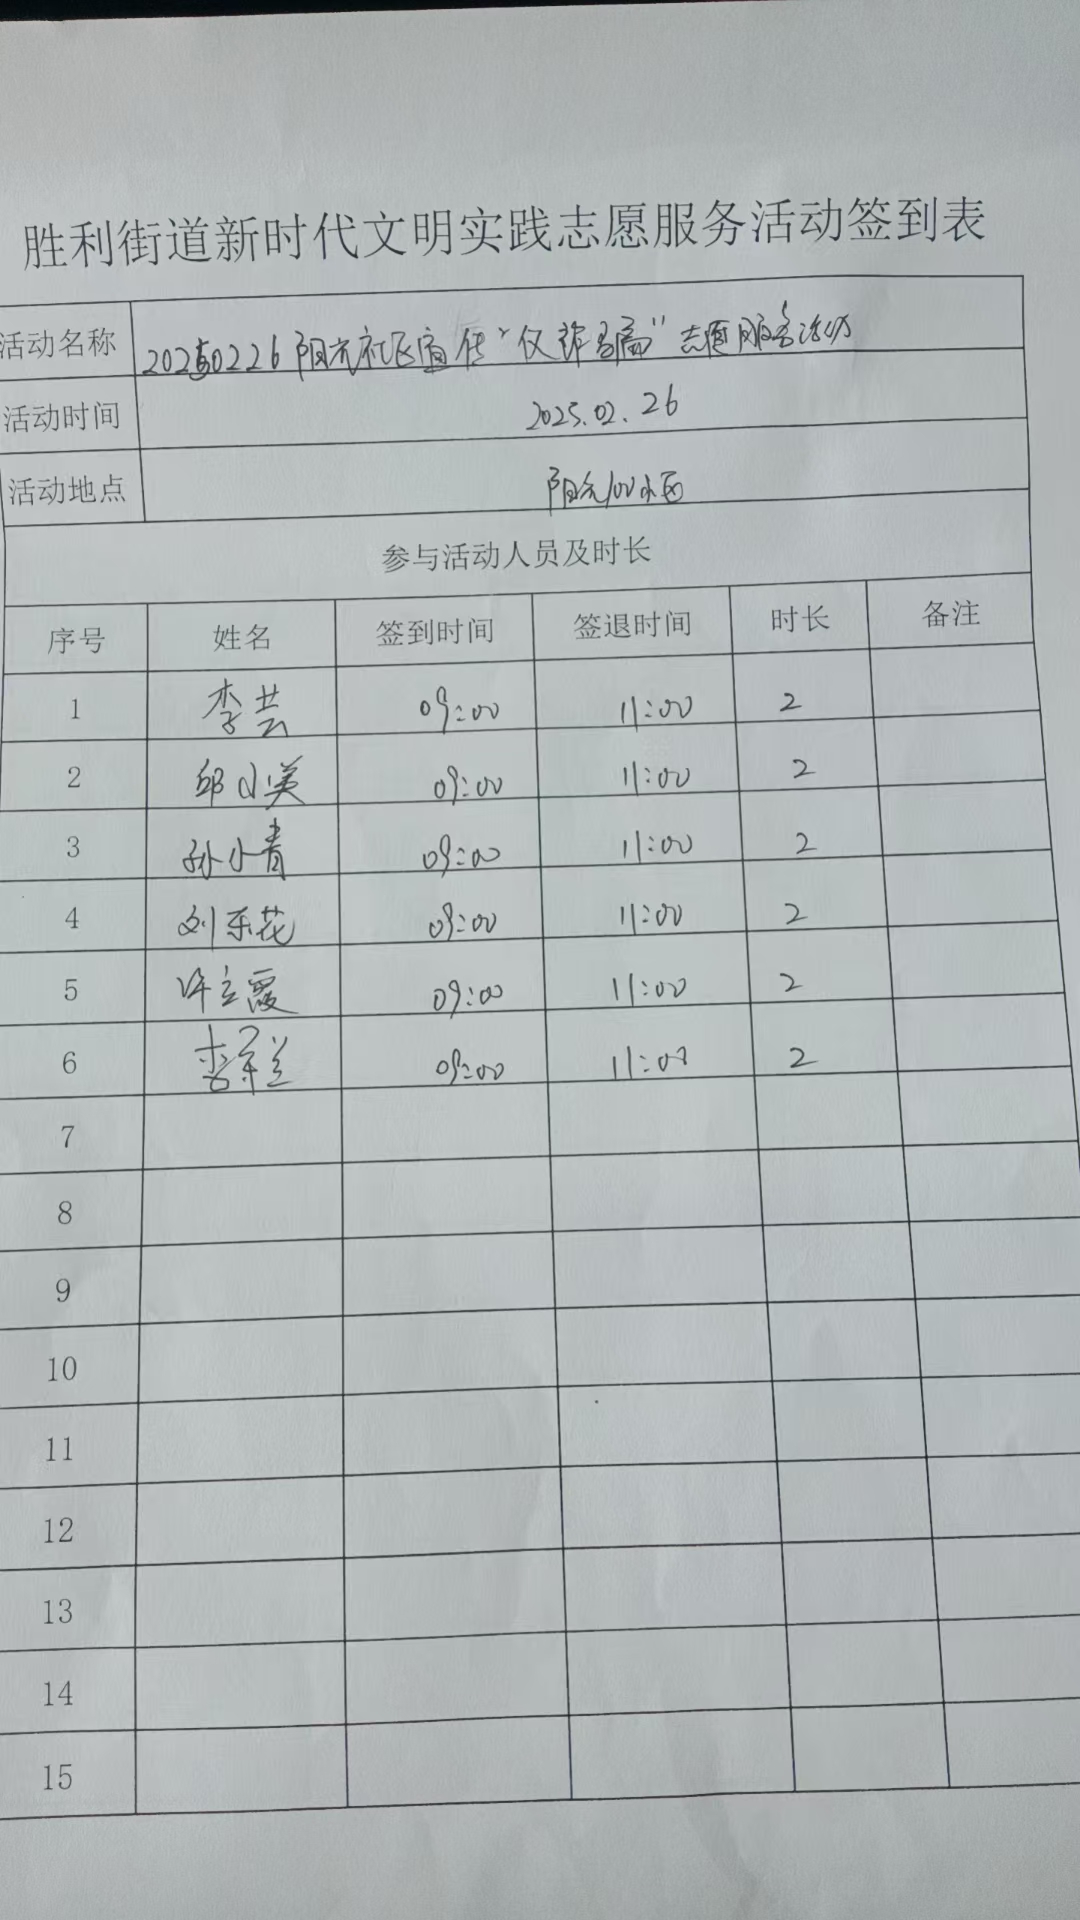 胜利街道新时代文明实践志愿服务活动签到表
活动名称 20250226阳光社区宣传“反诈骗局”志愿服务活动
活动时间 2025.02.26
活动地点 阳光100小区
参与活动人员及时长
序号 姓名 签到时间 签退时间 时长 备注
1 李芸 09:00 11:00 2
2 邱小英 09:00 11:00 2
3 孙小青 09:00 11:00 2
4 刘乐花 09:00 11:00 2
5 许立霞 09:00 11:00 2
6 李军兰 09:00 11:00 2
7
8
9
10
11
12
13
14
15